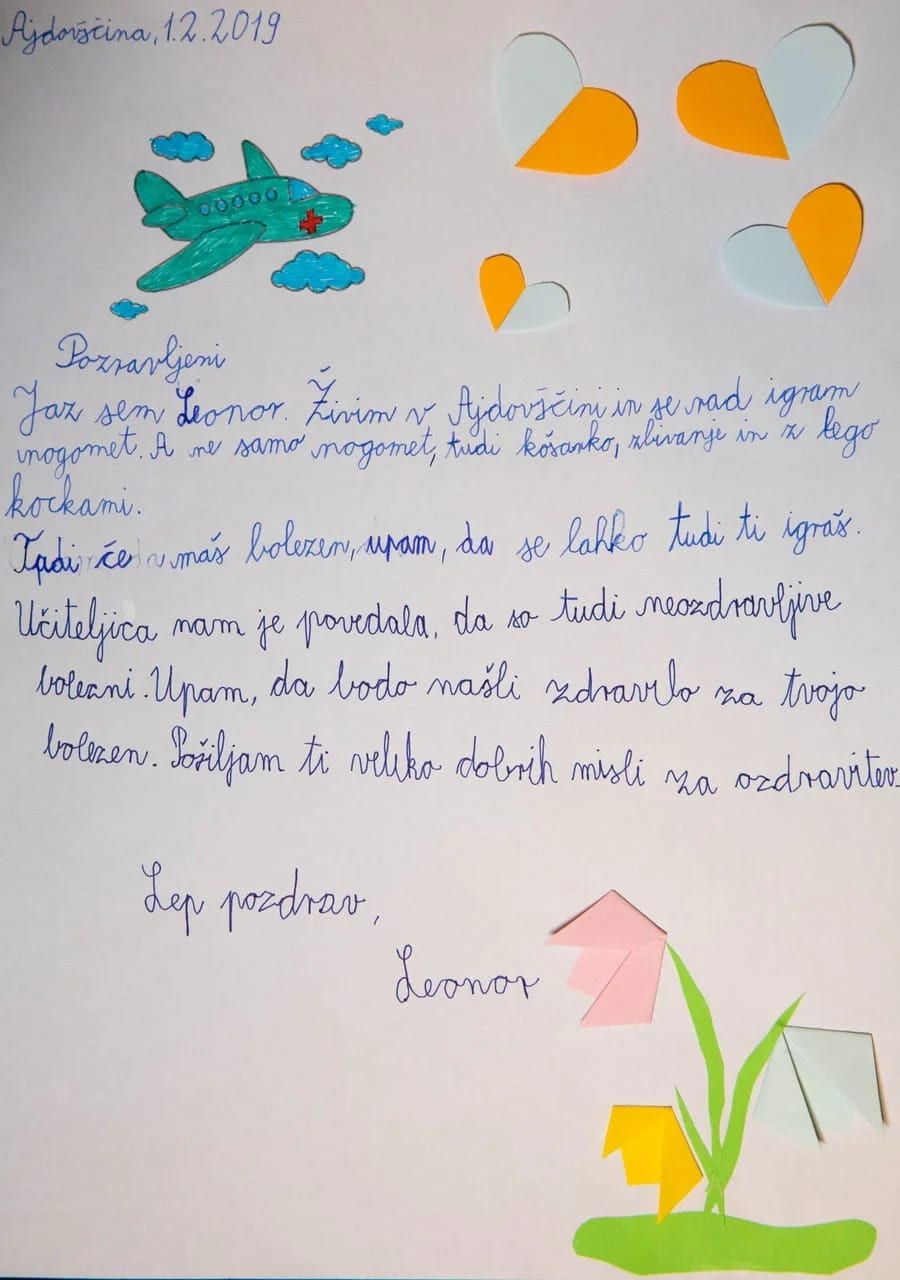 Ajdovščina, 1.2.2019
Pozravljeni
Jaz sem Leonor. Živim v Ajdovščini in se rad igram
nogomet. A ne samo nogomet, tudi košarko, zbivanje in z lego
kockami.
Tudi če maš bolezen, upam, da se lahko tudi ti igraš.
Učiteljica nam je povedala, da so tudi neozdravljive
bolezni. Upam, da bodo našli zdravilo za tvojo
bolezen. Pošiljam ti veliko dobrih misli za ozdravitev.
Lep pozdrav,
Leonor